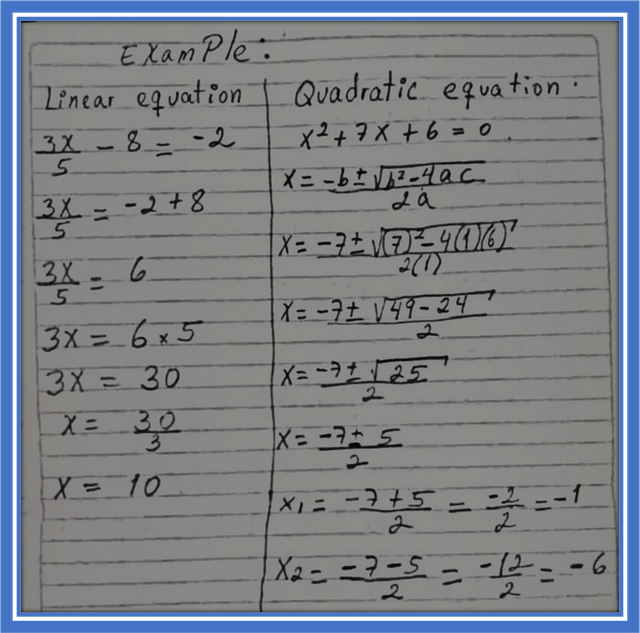 Example:
Linear equation
3x/5 - 8 = -2
3x/5 = -2 + 8
3x/5 = 6
3x = 6 × 5
3x = 30
x = 30/3
x = 10
Quadratic equation.
x² + 7x + 6 = 0
x = -b ± √(b² - 4ac) / 2a
x = -7 ± √((7)² - 4(1)(6)) / 2(1)
x = -7 ± √(49 - 24) / 2
x = -7 ± √25 / 2
x = -7 ± 5 / 2
x₁ = -7 + 5 / 2 = -2/2 = -1
x₂ = -7 - 5 / 2 = -12/2 = -6